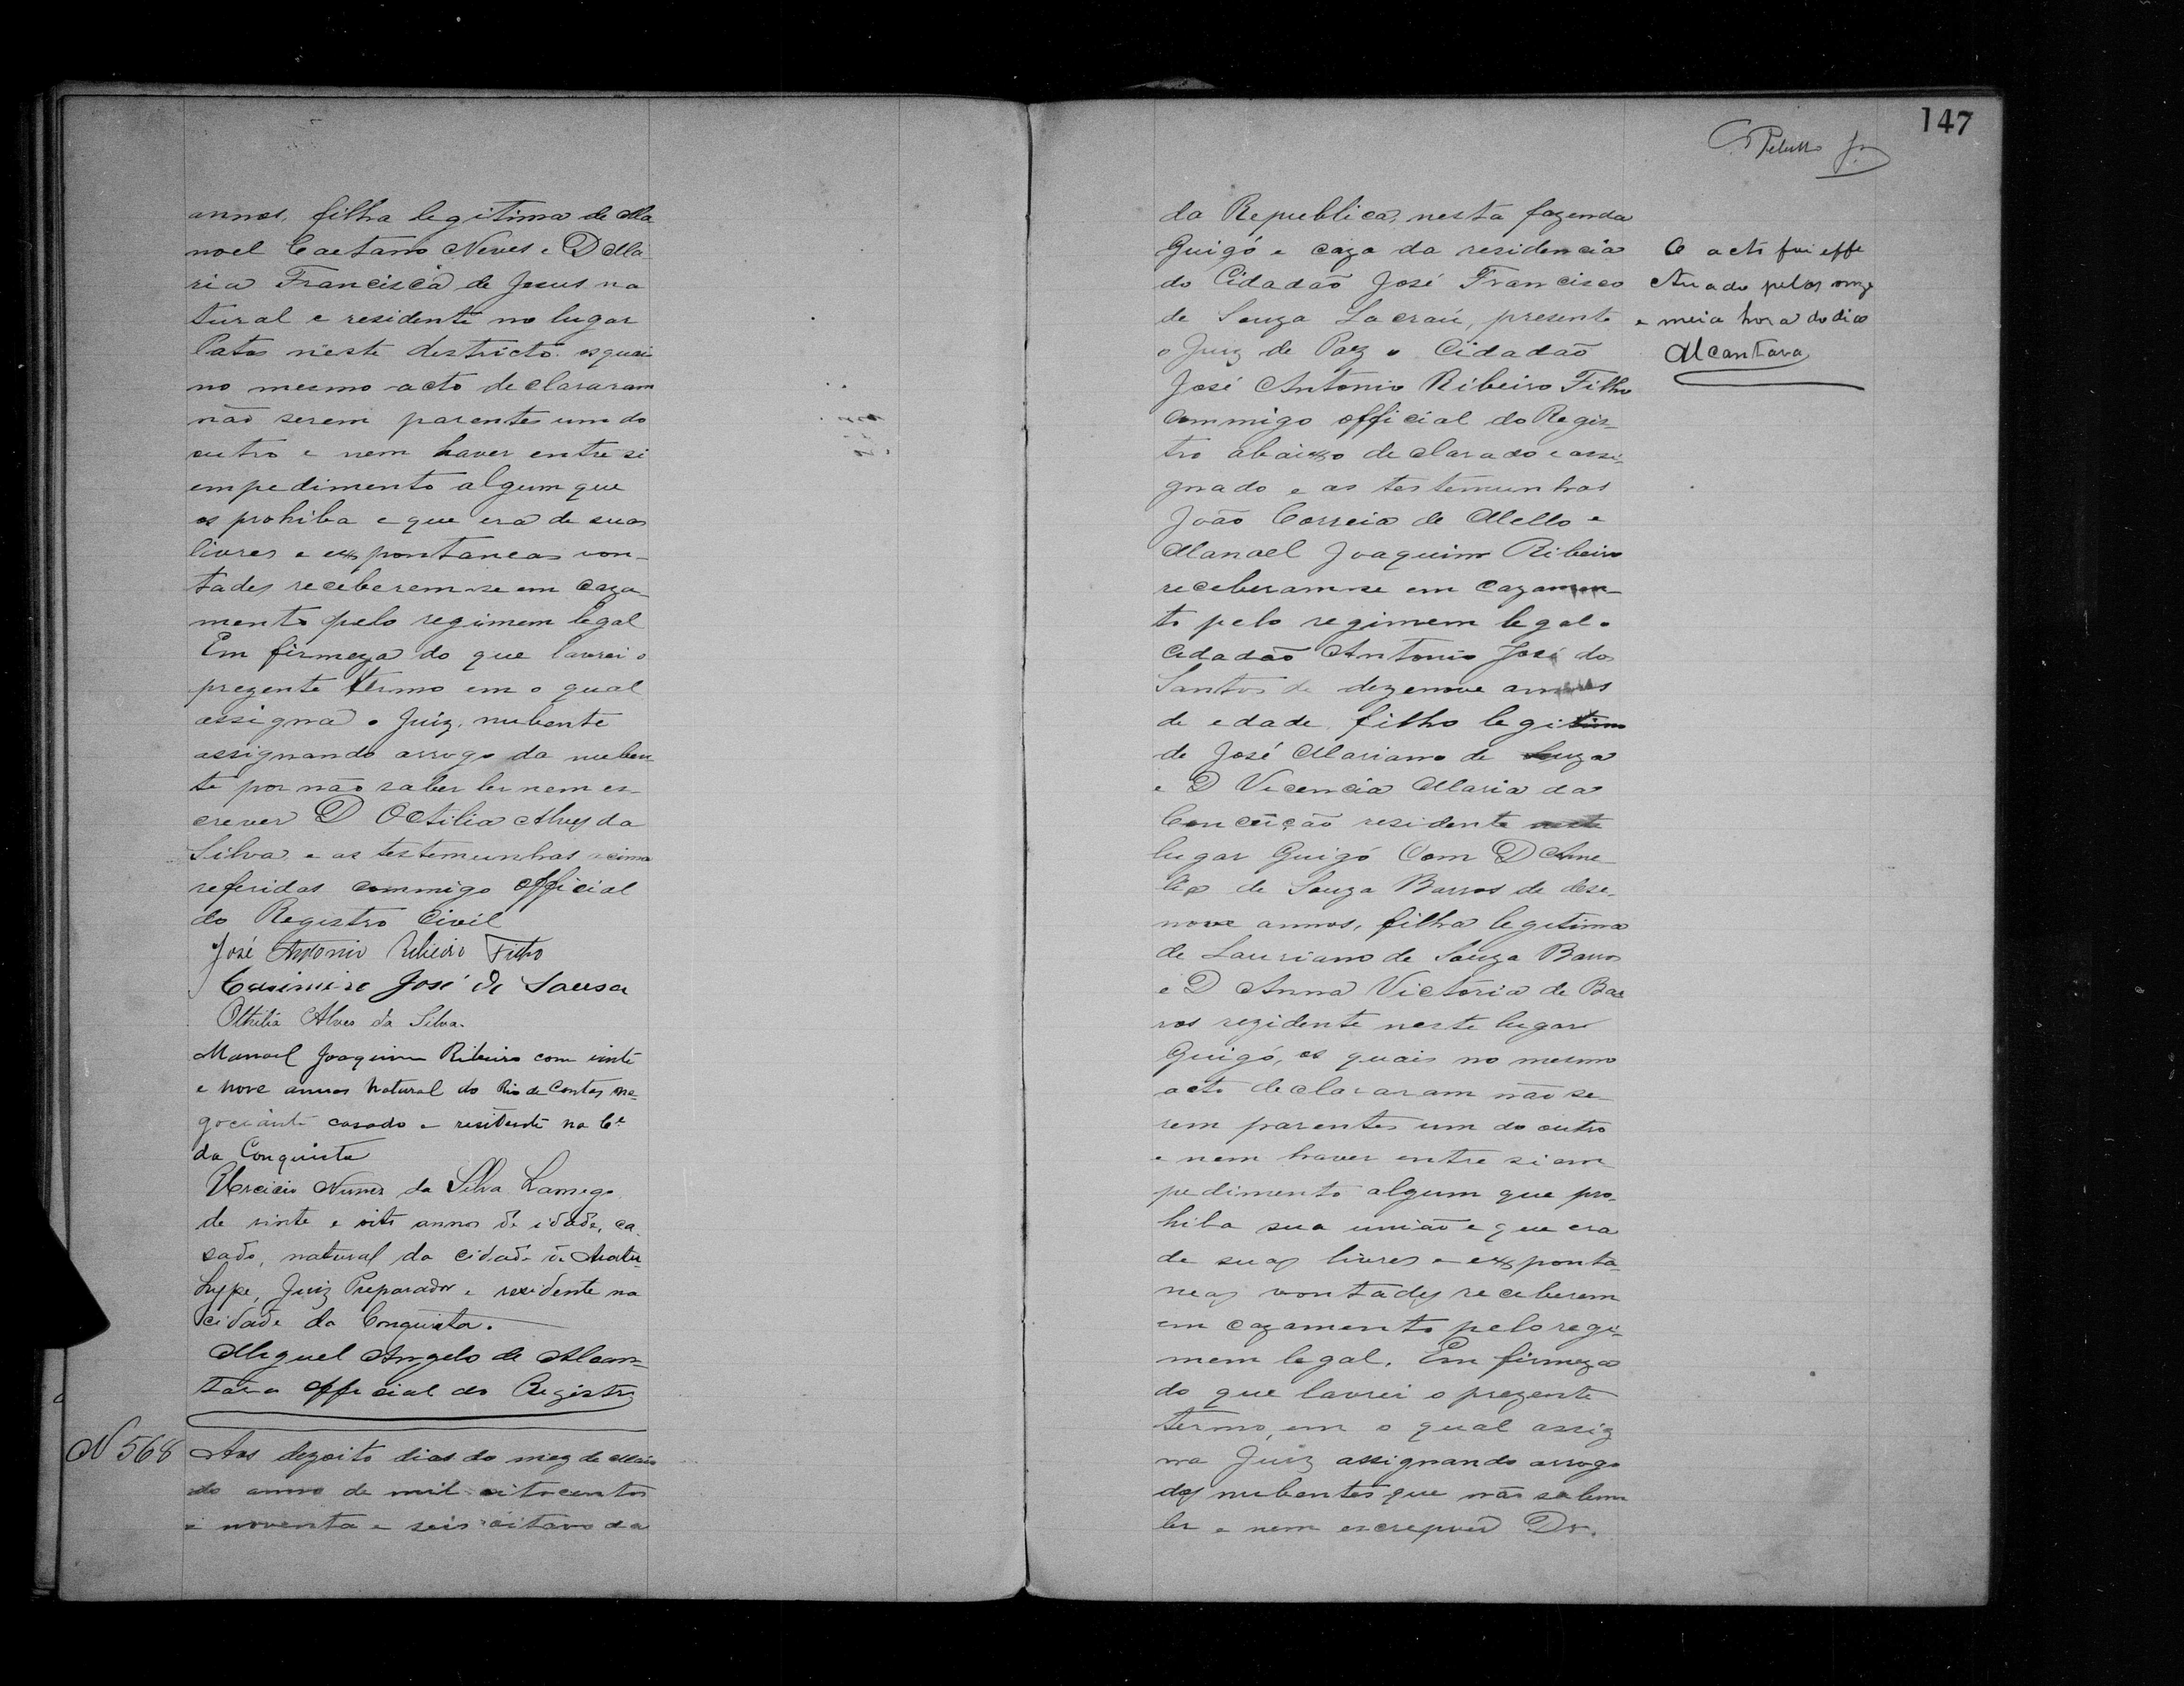 annos, filha legitima de Ma
noel Caetano Neves e D Ma
ria Francisca de Jesus na
tural e residente no lugar
Patos neste destricto. os quais
no mesmo acto declararam
não serem parentes um do
outro e nem haver entre si
empedimento algum que
os prohiba e que era de suas
livres e expontaneas von-
tades receberem-se em caza-
mento pelo regimem legal
Em firmeza do que lavrei o
prezente termo em o qual
assigna o Juiz, nubente
assignando arrogo da nuben
te por não saber ler nem es-
crever D Octilia Alves da
Silva e as testemunhas acima
referidas commigo official
do Registro Civil
José Antonio Ribeiro Filho
Casimiro José de Sousa
Othilia Alves da Silva.
Manoel Joaquim Ribeiro com vinte
e nove annos natural do Rio de Contas ne-
gociante casado e residente na Ce
da Conquista
Nunes da Silva Lamego
de vinte e oito annos de idade, ca
sado, natural da cidade de
hype, Juiz Preparador e residente na
cidade da Conquista.
Miguel Angelo de Alcan-
tara official do Registro
N 568 Aos dezoito dias do mez de Maio
do anno de mil oitocentos
e noventa e seis oitavo da
147
da Republica, nesta fazenda
Guigó e caza da residencia
do Cidadão José Francisco
de Souza Lacraú, presente
o Juiz de Paz o Cidadão
José Antonio Ribeiro Filho
commigo official do Regis-
tro abaixo declarado e assi-
gnado e as testemunhas
João Correia de Mello e
Manoel Joaquim Ribeiro
receberam-se em cazamen-
to pelo regimem legal o
Cidadão Antonio José dos
Santos de dezenove annos
de edade, filho legitimo
de José Mariano de Souza
e D Vicencia Maria da
Conceição residente neste
lugar Guigó Com D Ame-
lia de Souza Barros de dese-
nove annos, filha legitima
de Lauriano de Souza Barros
e D Anna Victoria de Bar
ros rezidente neste lugar
Guigó, os quais no mesmo
acto declararam não se-
rem parentes um do outro
e nem haver entre si em
pedimento algum que pro-
hiba sua união e que era
de suas livres e exponta-
neas vontades receberem
em cazamento pelo regi-
mem legal. Em firmeza
do que lavrei o prezente
termo, em o qual assig
na Juiz assignando arrogo
dos nubentes que não sabem
ler e nem escrepver Dr.
O acto foi effe
ctuado pelas onze
e meia hora do dia
Alcantara